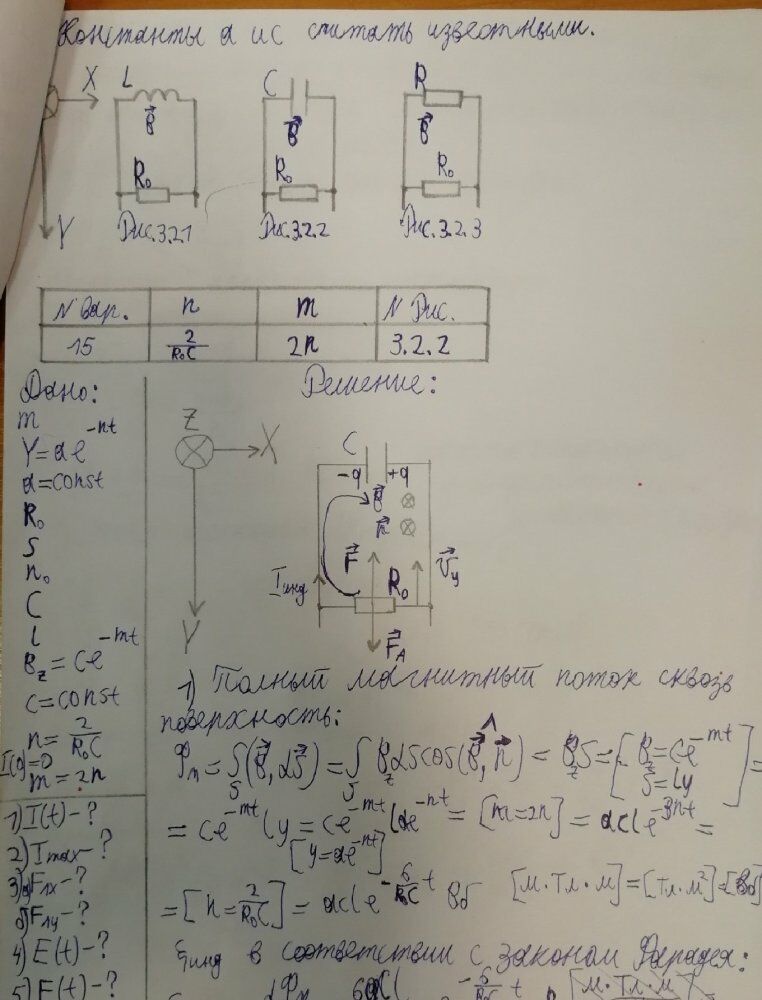 Константы a и c считать известными.
X L C R
B⃗ B⃗ B⃗
R₀ R₀ R₀
Y Рис.3.2.1 Рис.3.2.2 Рис.3.2.3
N вар. n m N Рис.
15 2/R₀C 2n 3.2.2
Дано: Решение:
m
Y=ae^-nt
a=const
R₀
S
n₀
C
l
B_z=ce^-mt
c=const
n=2/R₀C
I(0)=0
m=2n
1) I(t)-?
2) Imax-?
3) a) F_Лx-?
б) F_Лy-?
4) E(t)-?
5) F(t)-?
Z
X
Y
C
-q +q
B⃗
n⃗
F⃗
Iинд R₀ V⃗y
F⃗_A
1) Полный магнитный поток сквозь
поверхность:
Φn=∫S(B⃗, dS⃗)=∫S B_z dS cos(B⃗,^n⃗)=B_z S=[B_z=ce^-mt S=ly]=
=ce^-mt ly=ce^-mt lae^-nt=[m=2n]=acle^-3nt=
[y=ae^-nt]
=[n=2/R₀C]=acle^-6/R₀C t Вб [м·Тл·м]=[Тл·м²]=[Вб]
ξинд в соответствии с законом Фарадея:
dΦn 6acl e^-6/R₀C t [м·Тл·м]